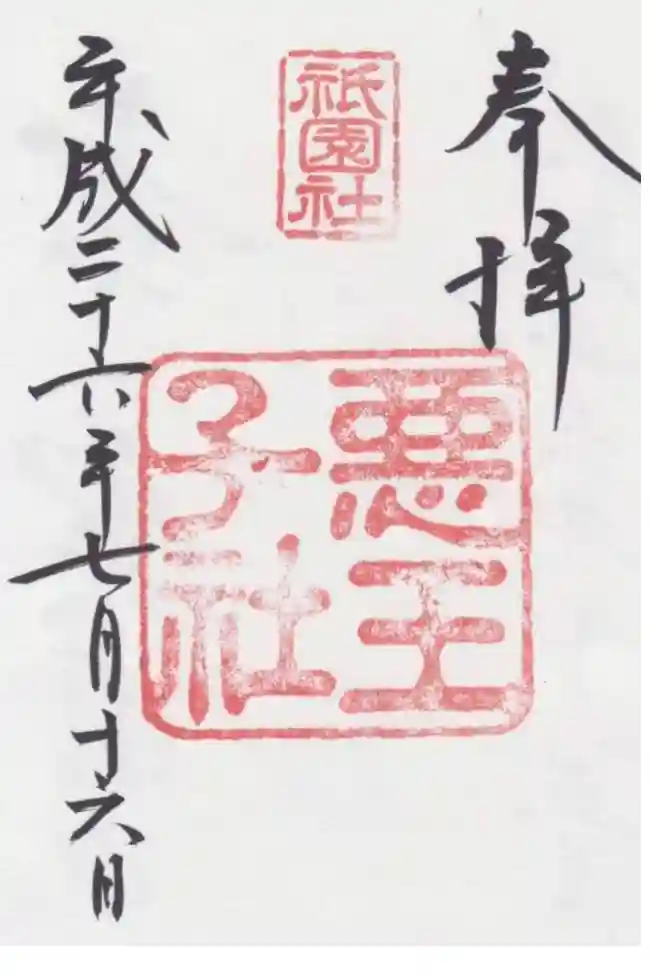 奉拝
祇園社
悪王
子社
平成二十六年七月十六日